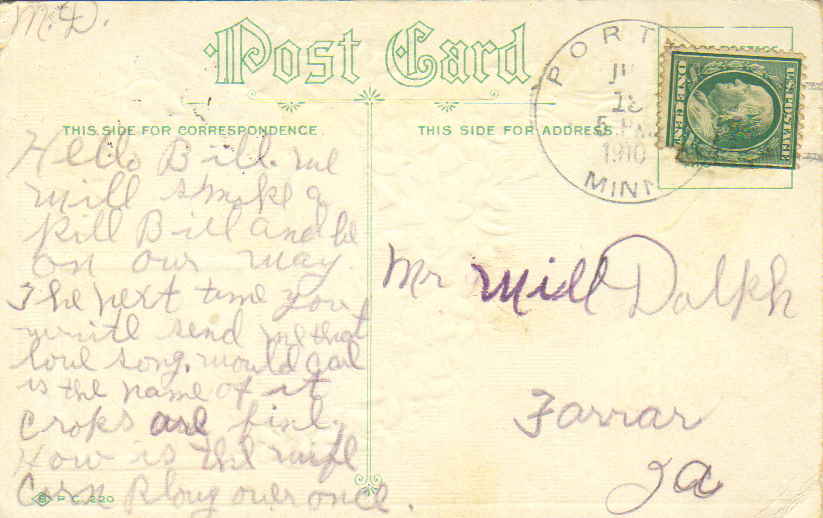 M.D.
Post Card
THIS SIDE FOR CORRESPONDENCE
THIS SIDE FOR ADDRESS
PORT
JU
18
5 PM
1910
MINN
U.S. POSTAGE
ONE CENT
Hello Bill. we
will smoke a
Pill Bill and be
on our way
The next time you
write send me that
love song. would
is the name of it
Crops are fine
How is the wife
Corn Ploug over once.
P.C. 220
Mr Will Dolph
Farrar
Ia